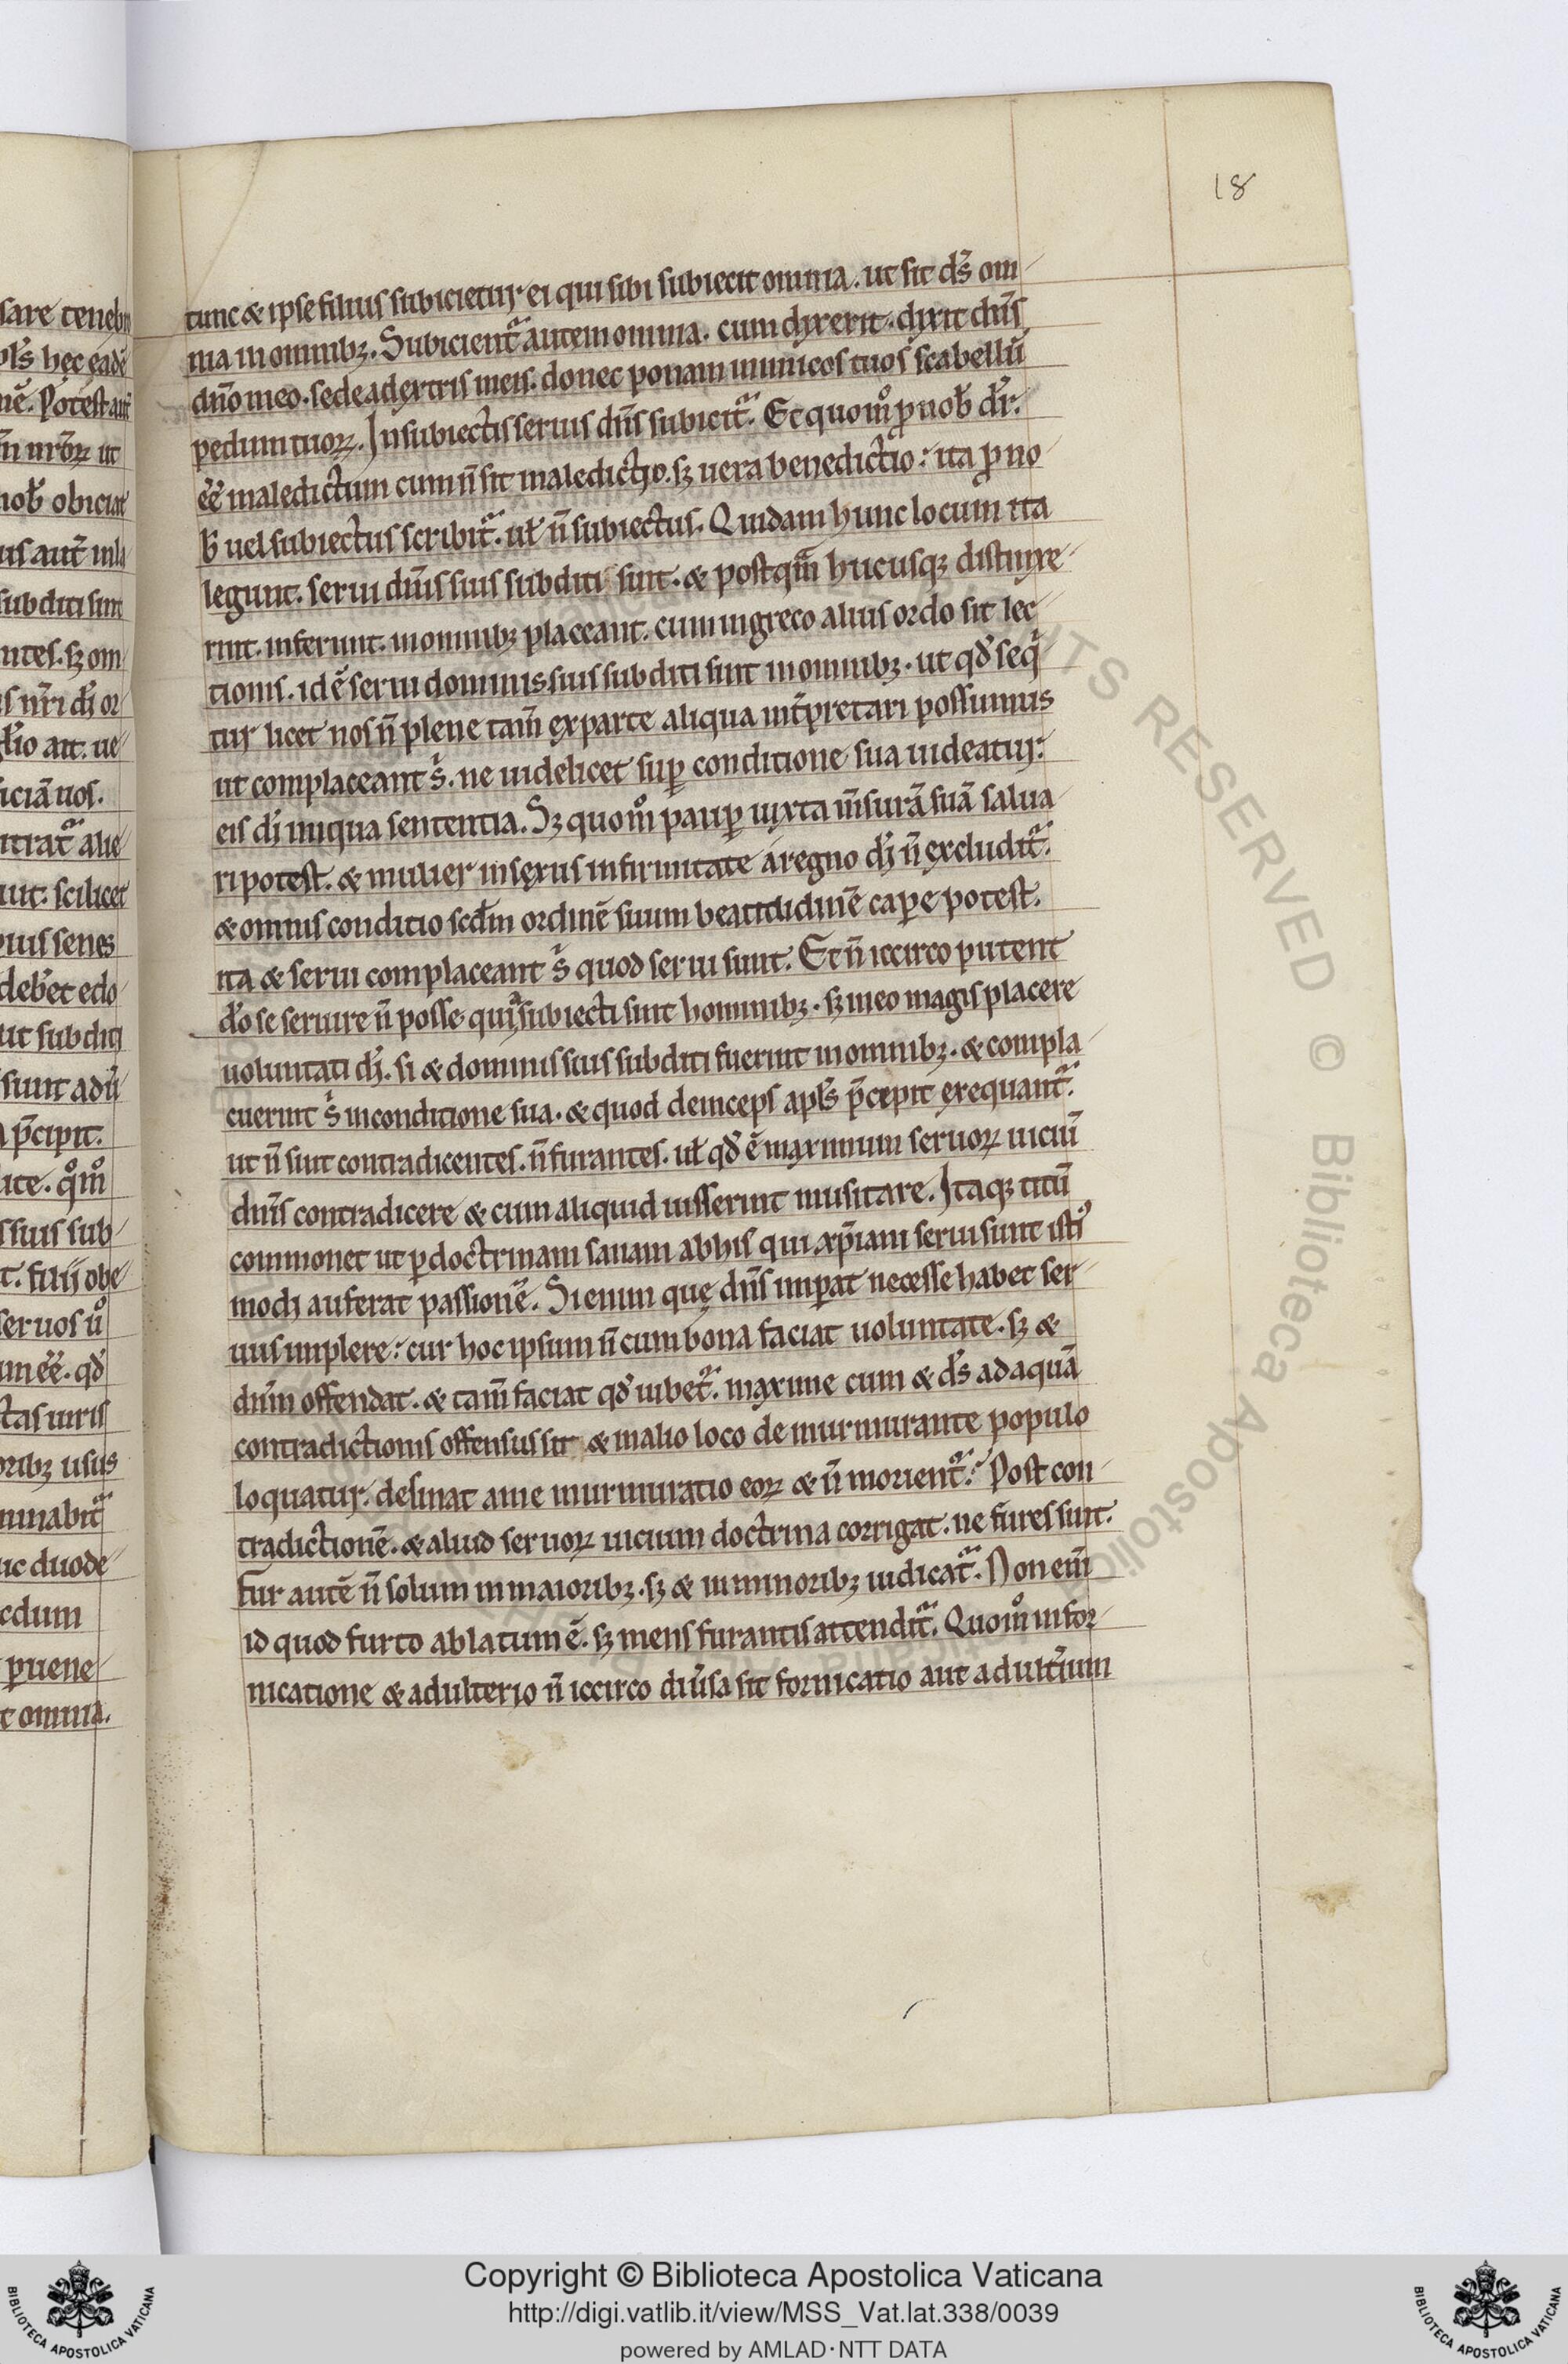 18
tunc & ipse filius subicietur ei qui sibi subiecit omnia. ut sit ds̄ om
nia in omnibꝫ. Subicient᷑ autem omnia. cum dyxerit. dyxit dn̄s
dn̄o meo. sede a dextris meis. donec ponam inimicos tuos scabellū
pedum tuoꝝ. In subiectis seruis dn̄s subicit᷑. Et quomͦ ꝓ nob̄ dr̄.
eē maledictum cum n̄ sit maledictio. sꝫ uera benedictio: ita ꝓ no
b̄ uel subiectus scribit᷑. ul̄ n̄ subiectus. Quidam hunc locum ita
legunt. serui dn̄is suis subditi sint. & postqm̄ hucusqꝫ distinxe
rint. inferunt. in omnibꝫ placeant. cum in greco alius ordo sit lec
tionis. id ē serui dominis suis subditi sint in omnibꝫ. ut qd̄ seqͥ
tur licet nos n̄ plene tam̄ ex parte aliqua int̄pretari possumus
ut complaceant s̄. ne uidelicet suꝑ conditione sua uideatur.
eis dī iniqua sententia. Sꝫ quomͦ pauꝑ iuxta m̄surā suā salua
ri potest. & mulier in sexus infirmitate a regno dī n̄ excludit᷑.
& omnis conditio scd̄m ordinē suum beatitudinē caꝑe potest.
ita & serui complaceant s̄ quod serui sunt. Et n̄ iccirco putent
dō se seruire n̄ posse quia subiecti sint hominibꝫ. sꝫ in eo magis placere
uoluntati dī. si & dominis suis subditi fuerint in omnibꝫ. & compla
cuerint s̄ in conditione sua. & quod deinceps apls̄ p̄cepit exequant᷑.
ut n̄ sint contradicentes. n̄ furantes. ul̄ qd̄ ē maximum seruoꝝ uiciū
dn̄is contradicere & cum aliquid iusserint musitare. Itaqꝫ titū
commonet ut ꝑ doctrinam sanam ab his qui xp̄iani serui sunt istiꝰ
modi auferat passionē. Si enim quę dn̄s imꝑat necesse habet ser
uus implere: cur hoc ipsum n̄ cum bona faciat uoluntate. sꝫ &
dn̄m offendat. & tam̄ faciat qd̄ iubet᷑. maxime cum & ds̄ ad aquā
contradictionis offensus sit & in alio loco de murmurante populo
loquatur. desinat a me murmuratio eoꝝ & n̄ morient᷑. Post con
tradictionē. & aliud seruoꝝ uicium doctrina corrigat. ne fures sint.
Fur autē n̄ solum in maioribꝫ. sꝫ & in minoribꝫ iudicat᷑. Non eni̅
id quod furto ablatum ē. sꝫ mens furantis attendit᷑. Quomͦ in for
nicatione & adulterio n̄ iccirco diu̅sa sit fornicatio aut adult̄ium
Copyright © Biblioteca Apostolica Vaticana
http://digi.vatlib.it/view/MSS_Vat.lat.338/0039
powered by AMLAD·NTT DATA
BIBLIOTECA APOSTOLICA VATICANA
BIBLIOTECA APOSTOLICA VATICANA